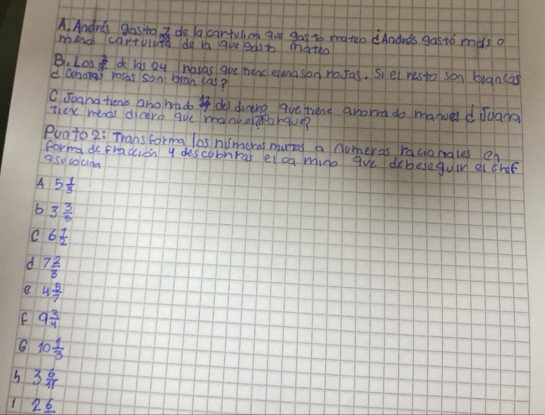 A. Andrés gasto 7/8 de la cartulina que gasto mateo ¿Andrés gastó más o
menos cartulina de la que gasto mateo
B. Los de las 24 rosas que tiene elena son rojas. Si el resto son blancas
¿ Cuantas rosas son blancas?
C. Joana tiene ahorrado del dinero que tiene ahorrado manuel ¿ Juana
tiene menos dinero que manuel? Porque?
Punto 2: Transforma los números mixtos a números racionales en
forma de fracción y descubriras el camino que debe seguir el chef
a su cocina
A 5 1/3
b 3 3/5
C 6 1/2
d 7 2/3
e 4 5/7
F 9 3/4
G 10 1/3
h 3 6/11
I 2 6